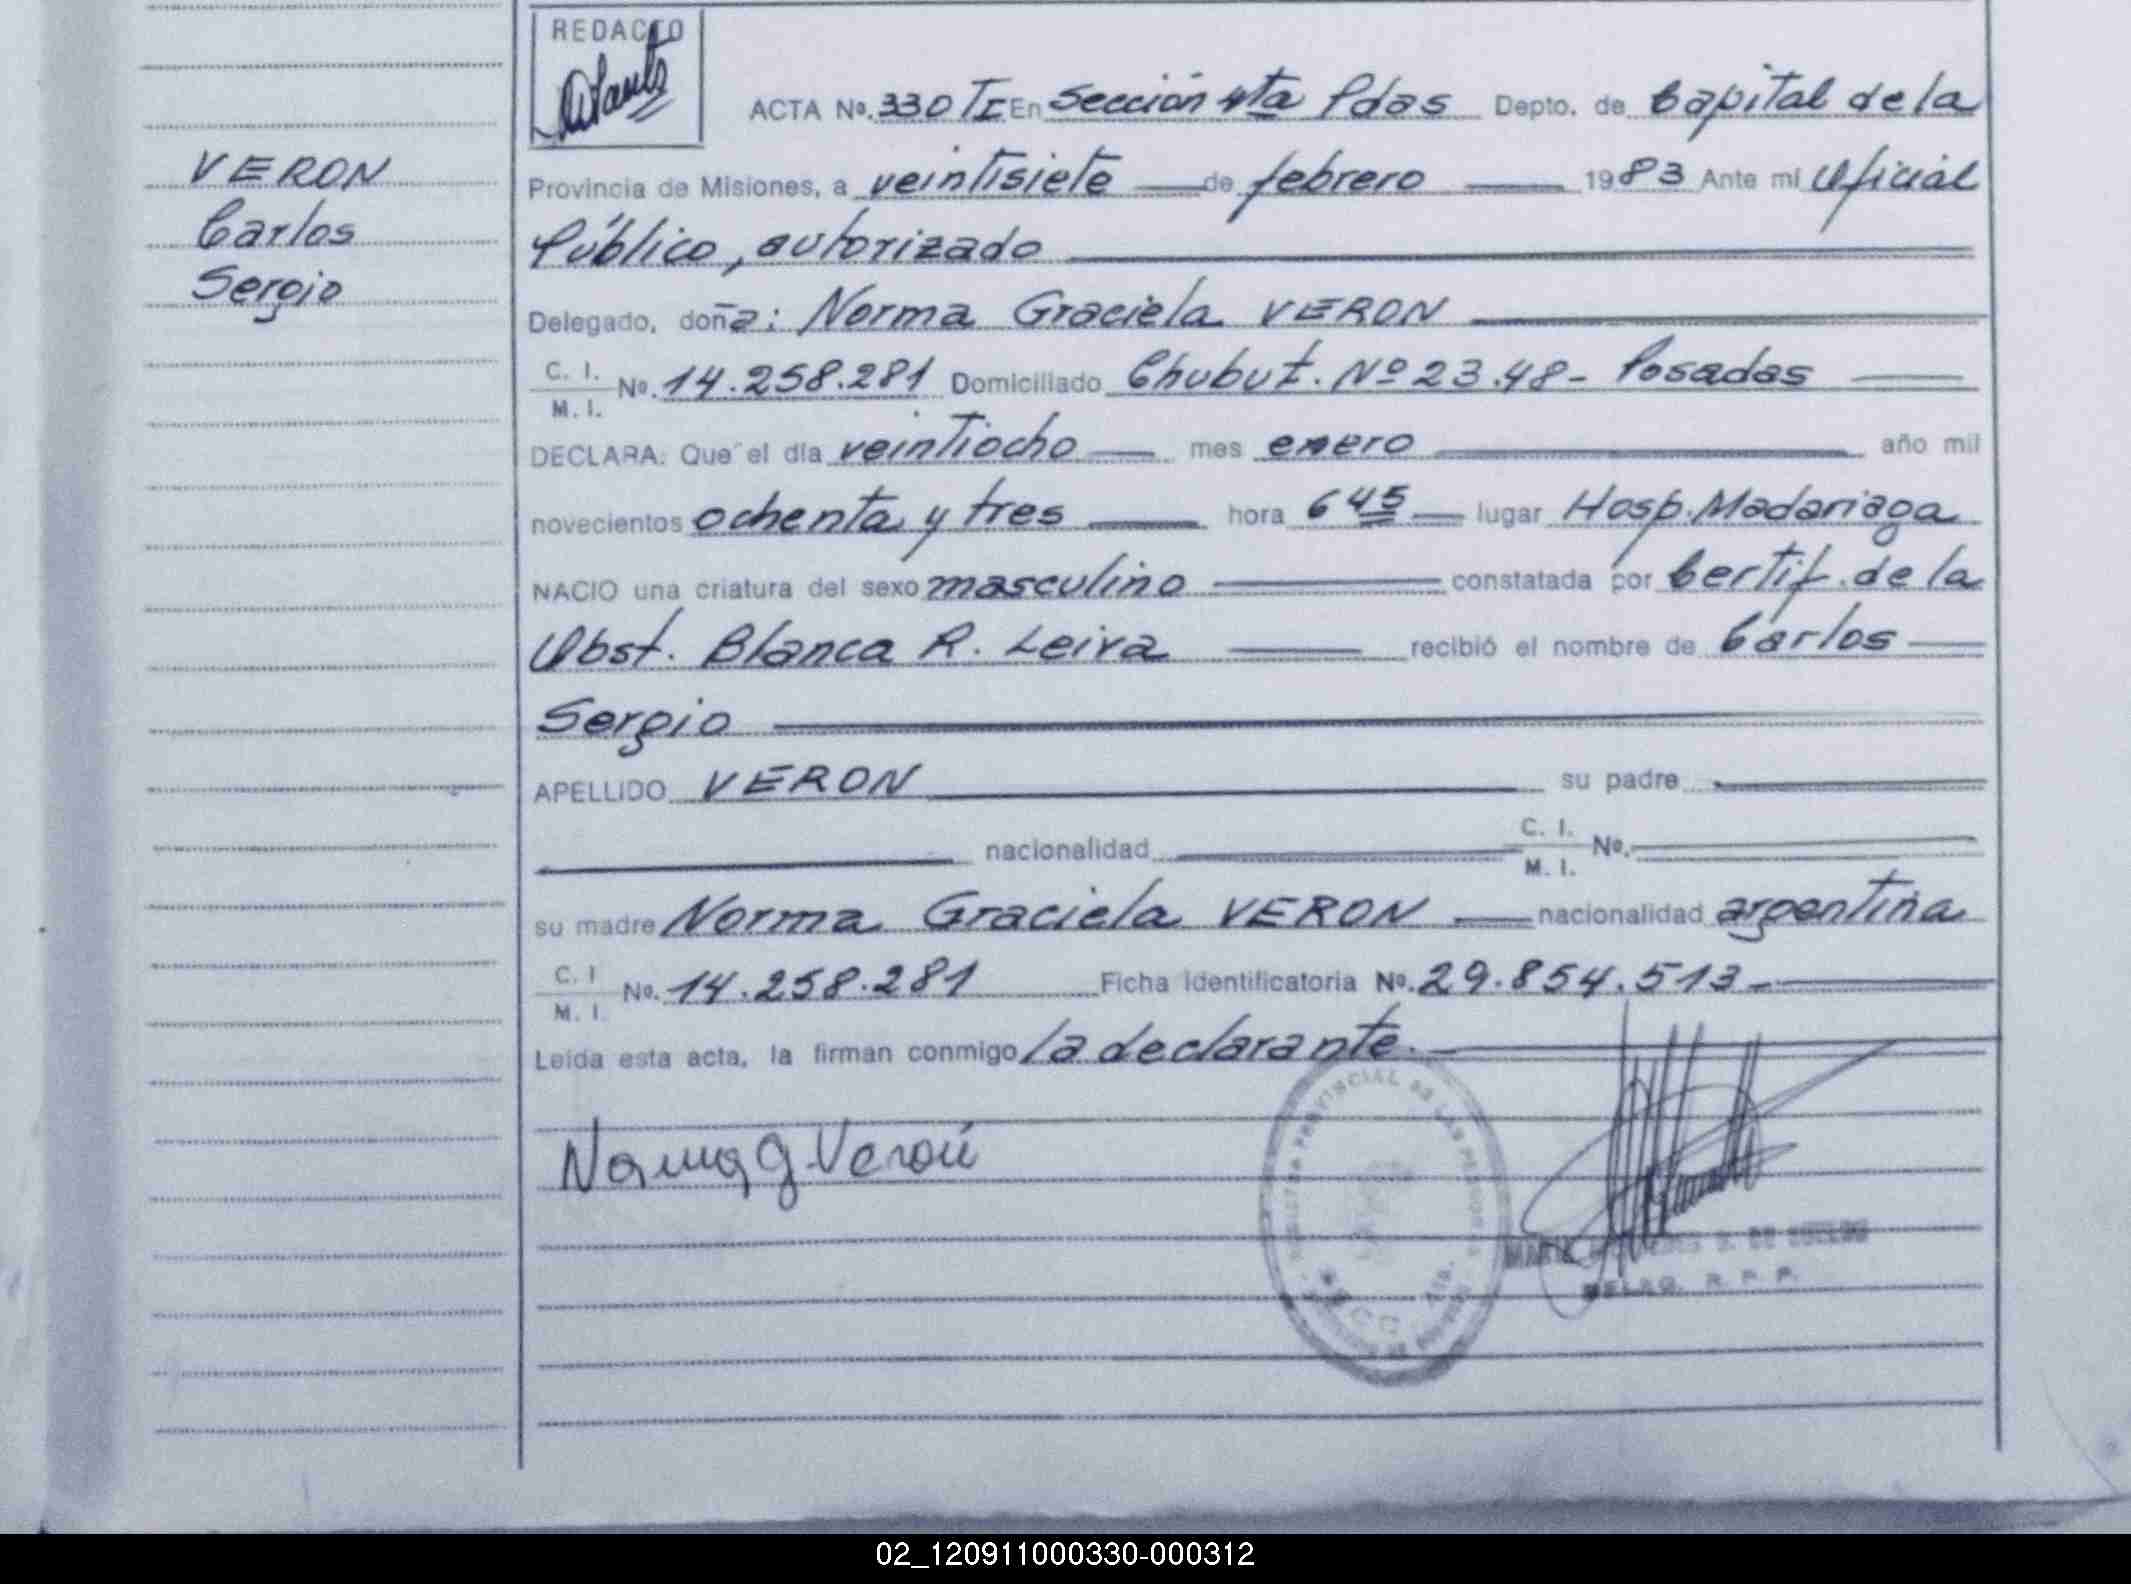 REDACTO
ACTA Nº. 330 TI En Sección 4ta Pdas Depto. de Capital de la
VERON
Provincia de Misiones, a veintisiete de febrero 1983 Ante mí Oficial
Carlos
Público, autorizado
Sergio
Delegado, doña: Norma Graciela VERON
C. I.
M. I. Nº. 14.258.281 Domiciliado Chubut. Nº 23.48- Posadas
DECLARA: Que el día veintiocho mes enero año mil
novecientos ochenta y tres hora 6 45 lugar Hosp. Madariaga
NACIO una criatura del sexo masculino constatada por Certif. de la
Obst. Blanca R. Leiva recibió el nombre de Carlos
Sergio
APELLIDO VERON su padre
nacionalidad C. I. M. I. Nº.
su madre Norma Graciela VERON nacionalidad argentina
C. I
M. I. Nº. 14.258.281 Ficha identificatoria Nº. 29.854.513-
Leída esta acta, la firman conmigo la declarante.
Norma G. Verón
PROVINCIAL DE LAS PERSONAS
DELEG. R. P. P.
02_120911000330-000312